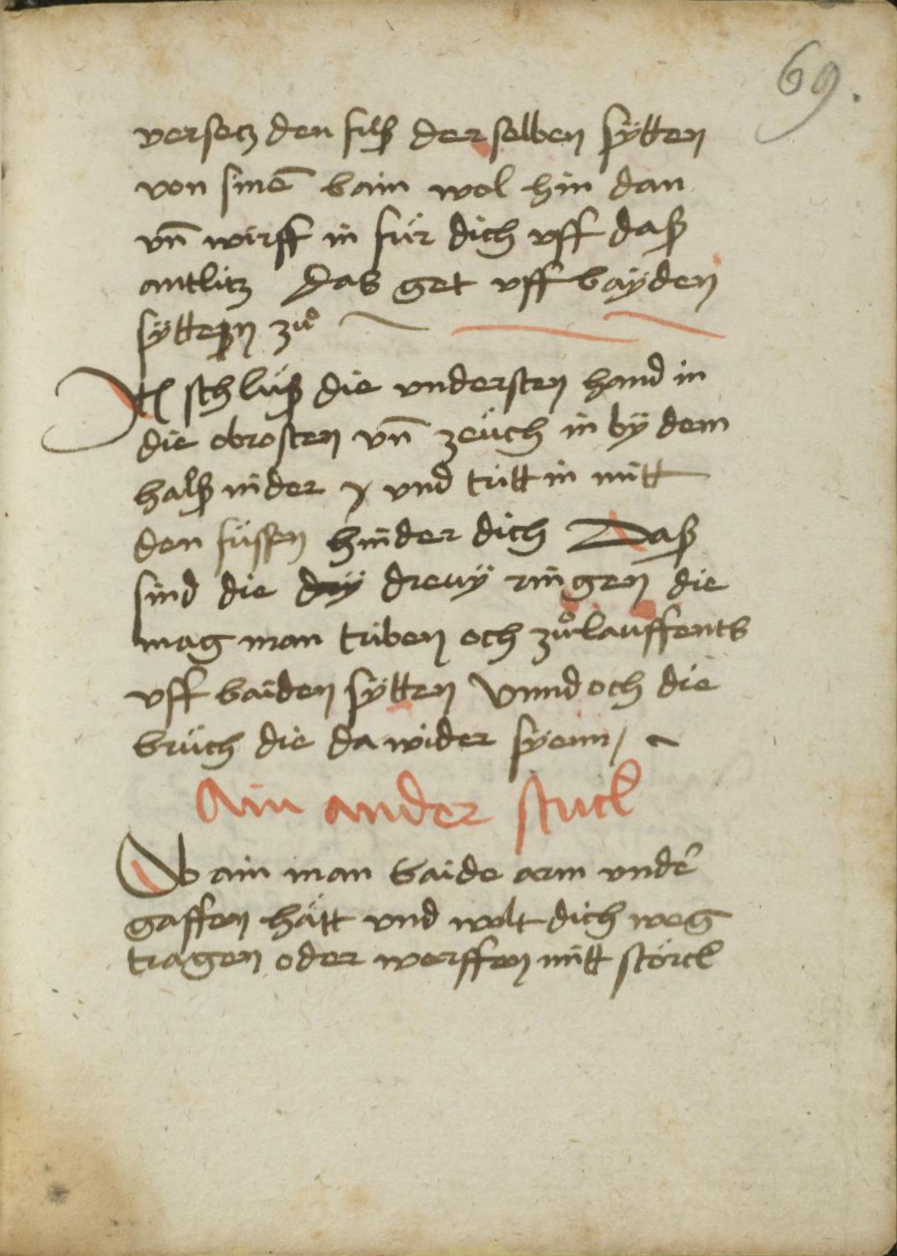 69.
versetz den fuß der selben sÿtten
von sinē bain wol hin dan
vn̄ wirff in für dich vff daß
antlitz das get vff baÿden
sÿtten zů
Itē schlüß die vndersten hand in
die obrosten vn̄ zeüch in bÿ dem
halß nider vnd tritt in mitt
den füssen hinder dich Daß
sind die dreüÿ ringen die
mag man triben och zů lauffents
vff baiden sÿtten Vnnd och die
brüch die da wider sÿenn /
Ain ander stuck
Ob ain man baide arm vnder
gaffen hätt vnd wolt dich weg
tragen oder werffen mitt störck